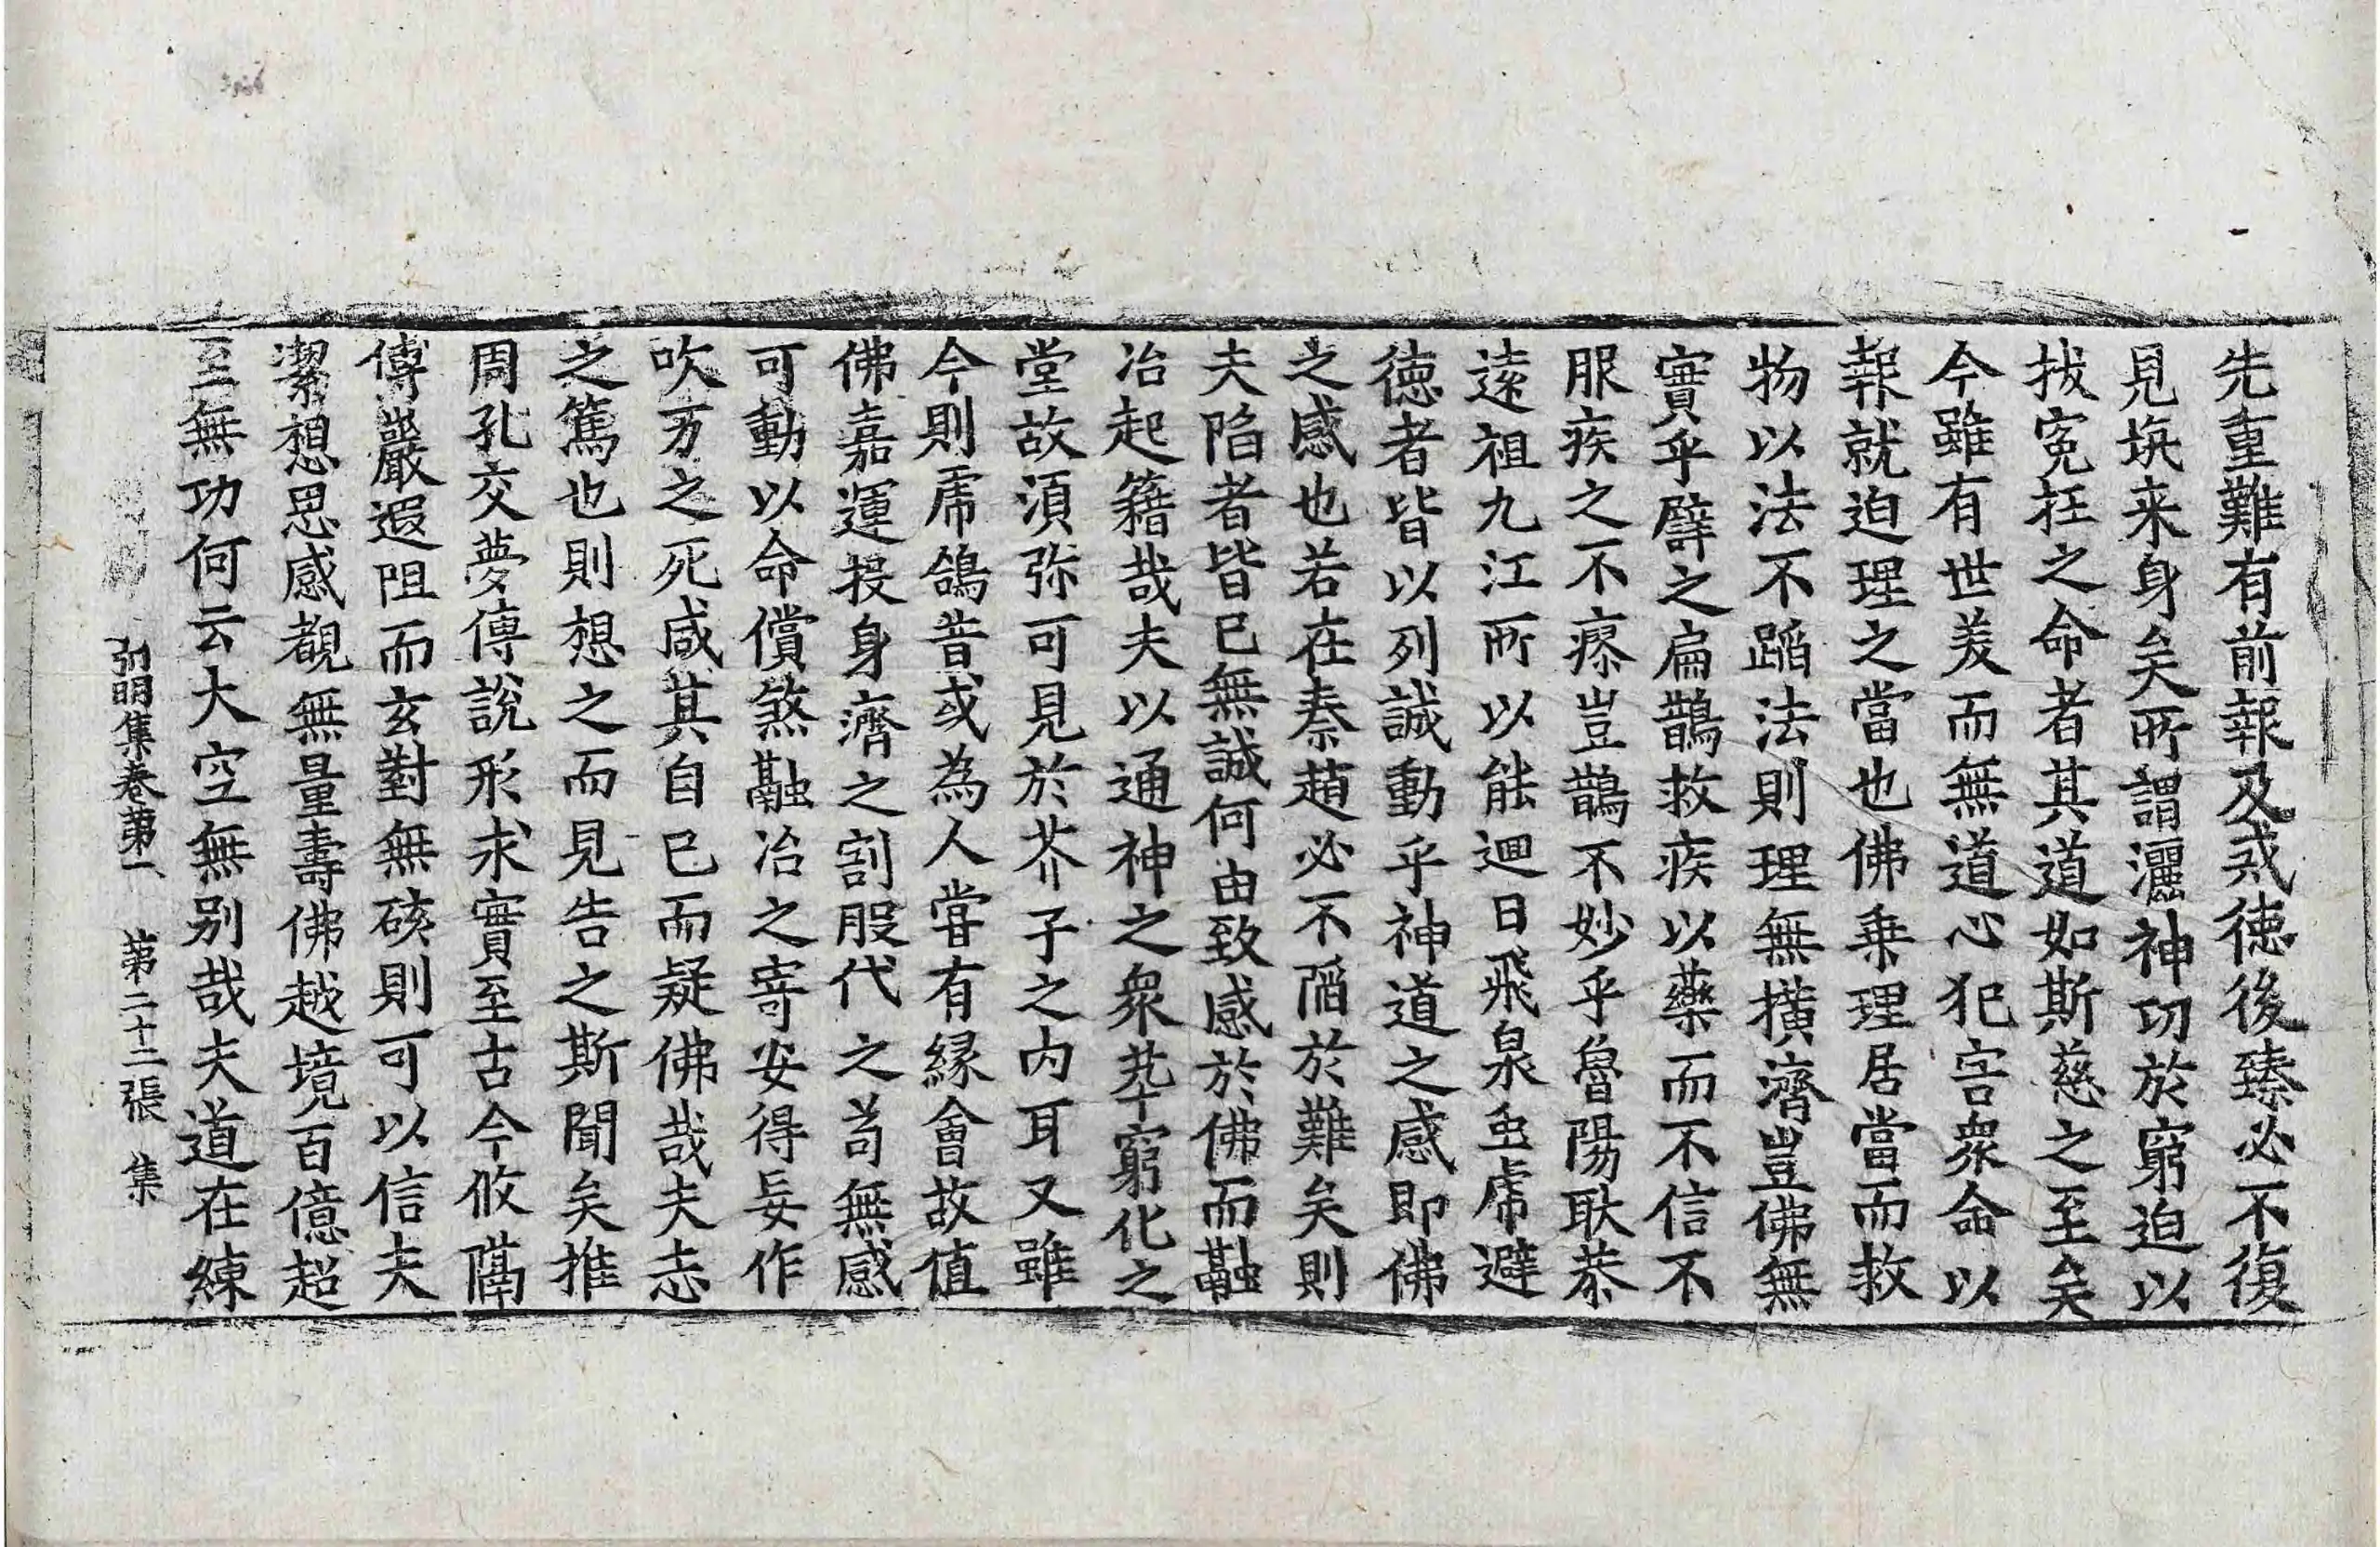 先重難有前報及戒徳後臻必不復
見埉来身矣所謂灑神功於窮迫以
拔寃枉之命者其道如斯慈之至矣
今雖有世美而無道心犯害衆命以
報就迫理之當也佛乗理居當而救
物以法不蹈法則理無撗濟豈佛無
實乎譬之扁鵲救疾以藥而不信不
服疾之不瘳豈鵲不妙乎魯陽耿恭
逺祖九江所以能迴日飛泉虫虎避
徳者皆以列誠動乎神道之感即佛
之感也若在秦趙必不陷於難矣則
夫陷者皆已無誠何由致感於佛而融
冶起籍哉夫以通神之衆萃窮化之
堂故湏弥可見於芥子之内耳又雖
今則虎鴿昔或為人嘗有縁會故值
佛嘉運投身濟之割股代之苟無感
可動以命償煞融冶之寄安得妄作
吹万之死咸其自已而疑佛哉夫志
之篤也則想之而見告之斯聞矣推
周孔交夢傅說形求實至古今攸隔
傅巖遐阻而玄對無硋則可以信夫
潔想思感覩無量壽佛越境百億超
至無功何云大空無别哉夫道在練
弘明集卷第二 第二十二張 集